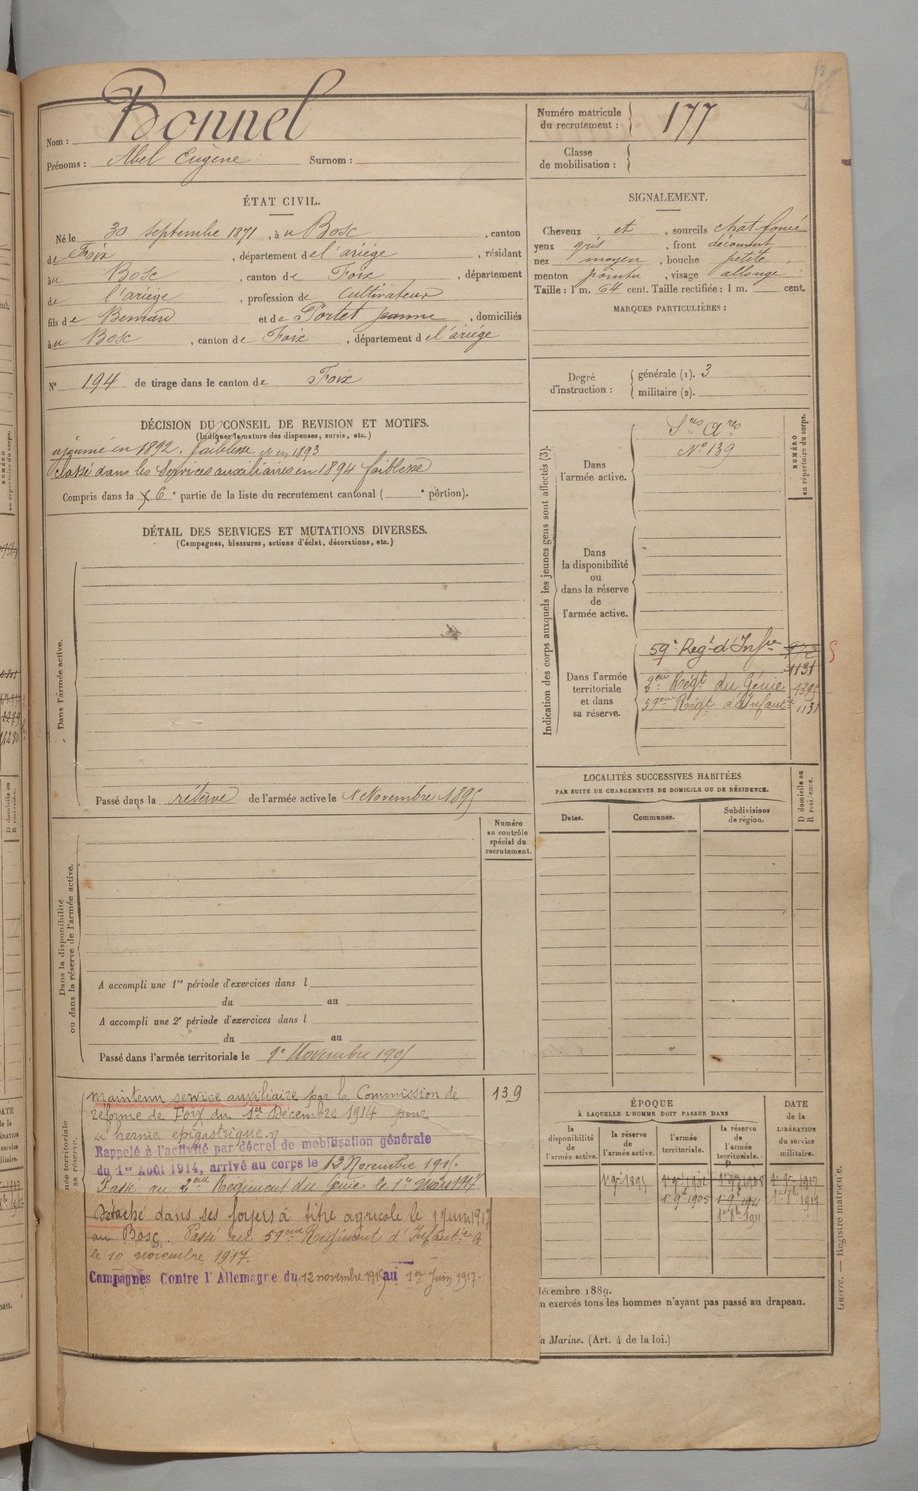 Nom : Bonnel
Prénoms : Abel Eugène Surnom :
Numéro matricule du recrutement : 177
Classe de mobilisation :
ÉTAT CIVIL.
Né le 30 septembre 1871, à u Bosc, canton
de Foix, département de l'ariège, résidant
à u Bosc, canton de Foix, département
de l'ariège, profession de cultivateur
fils de Bernard et de Portet Jeanne, domiciliés
à u Bosc, canton de Foix, département de l'ariège
N° 194 de tirage dans le canton de Foix
SIGNALEMENT.
Cheveux et, sourcils chat. foncé
yeux gris, front découvert
nez moyen, bouche petite,
menton pointu, visage allongé
Taille : 1 m. 64 cent. Taille rectifiée : 1 m. cent.
MARQUES PARTICULIÈRES :
Degré d'instruction : générale (1). 3
militaire (2).
DÉCISION DU CONSEIL DE REVISION ET MOTIFS.
(Indiquer la nature des dispenses, sursis, etc.)
ajourné en 1892. faiblesse et en 1893
classé dans les services auxiliaires en 1894 faiblesse
Compris dans la 6e partie de la liste du recrutement cantonal ( e portion).
DÉTAIL DES SERVICES ET MUTATIONS DIVERSES.
(Campagnes, blessures, actions d'éclat, décorations, etc.)
Dans l'armée active.
Passé dans la réserve de l'armée active le 1 Novembre 1895
Numéro au contrôle spécial du recrutement.
Dans la disponibilité ou dans la réserve de l'armée active.
A accompli une 1re période d'exercices dans l
du au
A accompli une 2e période d'exercices dans l
du au
Passé dans l'armée territoriale le 1er Novembre 1905
139
Maintenu service auxiliaire par la Commission de
réforme de Foix du 1er Décembre 1914 pour
"hernie épigastrique."
Rappelé à l'activité par décret de mobilisation générale
du 1er Août 1914, arrivé au corps le 12 Novembre 1915.
Passé au 2eme Regiment du Génie le 1er Mars 1917
Détaché dans ses foyers à titre agricole le 1 juin 1917
au Bosc. Passé au 59eme Régiment d'Infanterie
le 10 novembre 1917.
Campagnes Contre l'Allemagne du 12 novembre 1915 au 1er Juin 1917.
Indication des corps auxquels les jeunes gens sont affectés (3).
NUMÉRO au répertoire du corps.
Dans l'armée active.
Sces Ares
N° 139
Dans la disponibilité ou dans la réserve de l'armée active.
Dans l'armée territoriale et dans sa réserve.
59e Regt d'Infrie
1131
2eme Régt du Génie
59eme Régt d'Infantie 1131
LOCALITÉS SUCCESSIVES HABITÉES
PAR SUITE DE CHANGEMENTS DE DOMICILE OU DE RÉSIDENCE.
Dates. Communes. Subdivisions de région. D domicile ou R résidence.
ÉPOQUE
À LAQUELLE L'HOMME DOIT PASSER DANS
DATE de la LIBÉRATION du service militaire.
la disponibilité de l'armée active.
la réserve de l'armée active.
l'armée territoriale.
la réserve de l'armée territoriale.
1er 9bre 1895
1er 9bre 1905
décembre 1889.
n exercés tous les hommes n'ayant pas passé au drapeau.
a Marine. (Art. 4 de la loi.)
Guerre. — Registre matricule.